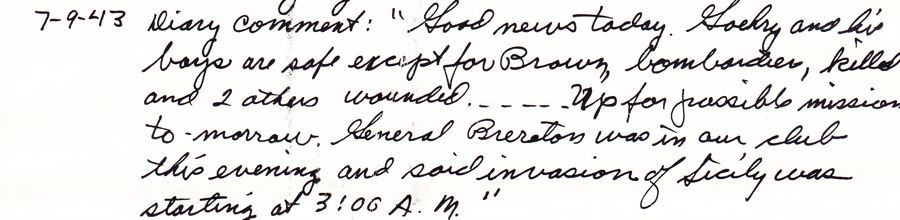 7-9-43 Diary comment: "Good news today. Goehry and his
boys are safe except for Brown, bombardier, killed
and 2 others wounded. _ _ _ _ _ Up for possible mission
to-morrow. General Brereton was in our club
this evening and said invasion of Sicily was
starting at 3:00 A.M."